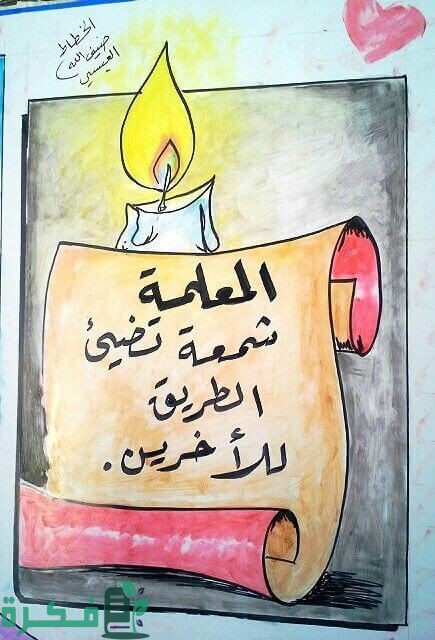 الخطاط
ضيف الله
العيسي
المعلمة
شمعة تضيئ
الطريق
للأخرين.
فكرة